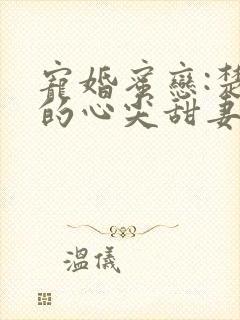 寵婚蜜戀:楚
的心尖甜妻
溫儀